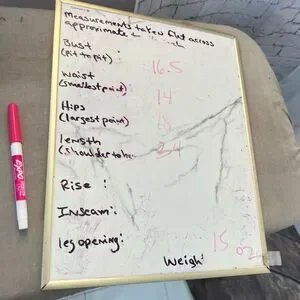 measurements taken flat across
approximate
Bust :
(pit to pit) 16.5
waist
(smallest point) 14
Hips
(largest point)
length
(shoulder to 34
Rise :
Inseam :
leg opening :
Weigh 15 oz
EXPO